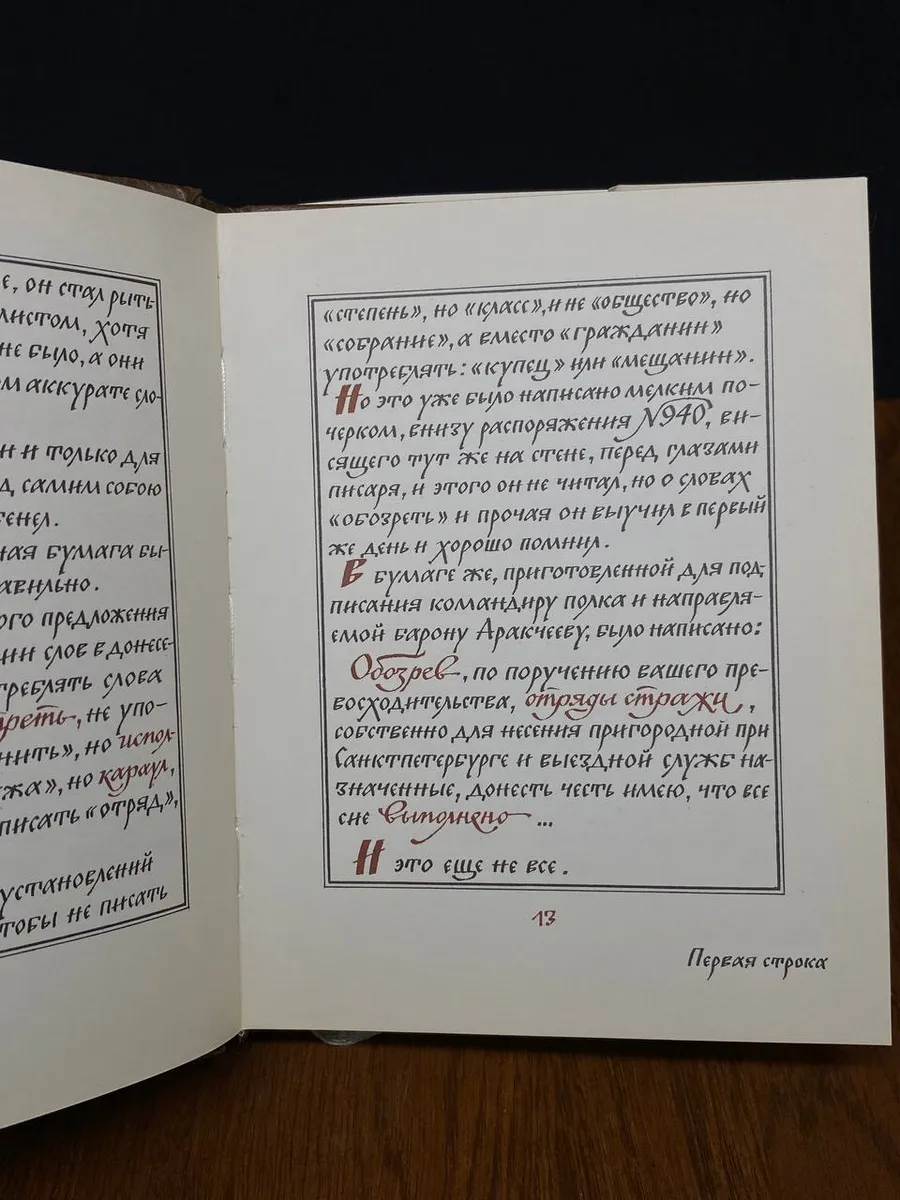 е, он стал рыть
листом, хотя
не было, а они
ом аккурате сло-
н и только для
д самим собою
генел.
ная бумага бы-
авильно.
ого предложения
нии слов в донесе-
треблять слова
реть, не упо-
нить», но испол-
жа», но караул,
писать «отряд»,
установлений
тобы не писать
«степень», но «класс», и не «общество», но
«собрание», а вместо «гражданин»
употреблять: «купец» или «мещанин».
Но это уже было написано мелким по-
черком, внизу распоряжения №940, ви-
сящего тут же на стене, перед глазами
писаря, и этого он не читал, но о словах
«обозреть» и прочая он выучил в первый
же день и хорошо помнил.
В бумаге же, приготовленной для под-
писания командиру полка и направля-
емой барону Аракчееву, было написано:
Обозрев, по поручению вашего пре-
восходительства, отряды стражи,
собственно для несения пригородной при
Санктпетербурге и выездной служб на-
значенные, донесть честь имею, что все
сие выполнено...
И это еще не все.
13
Первая строка